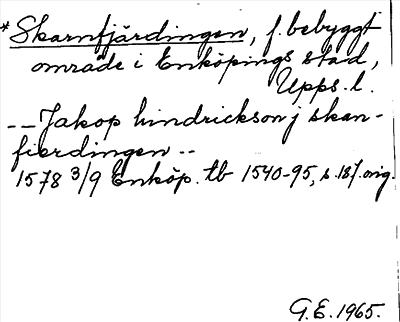 *Skarnfjärdingen, f. bebyggt
område i Enköpings stad,
Upps. l.
-- Jakop hindrickson j skan-
fierdingen --
1578 3/9 Enköp. tb 1540-95, s. 187. orig.
G.E. 1965.